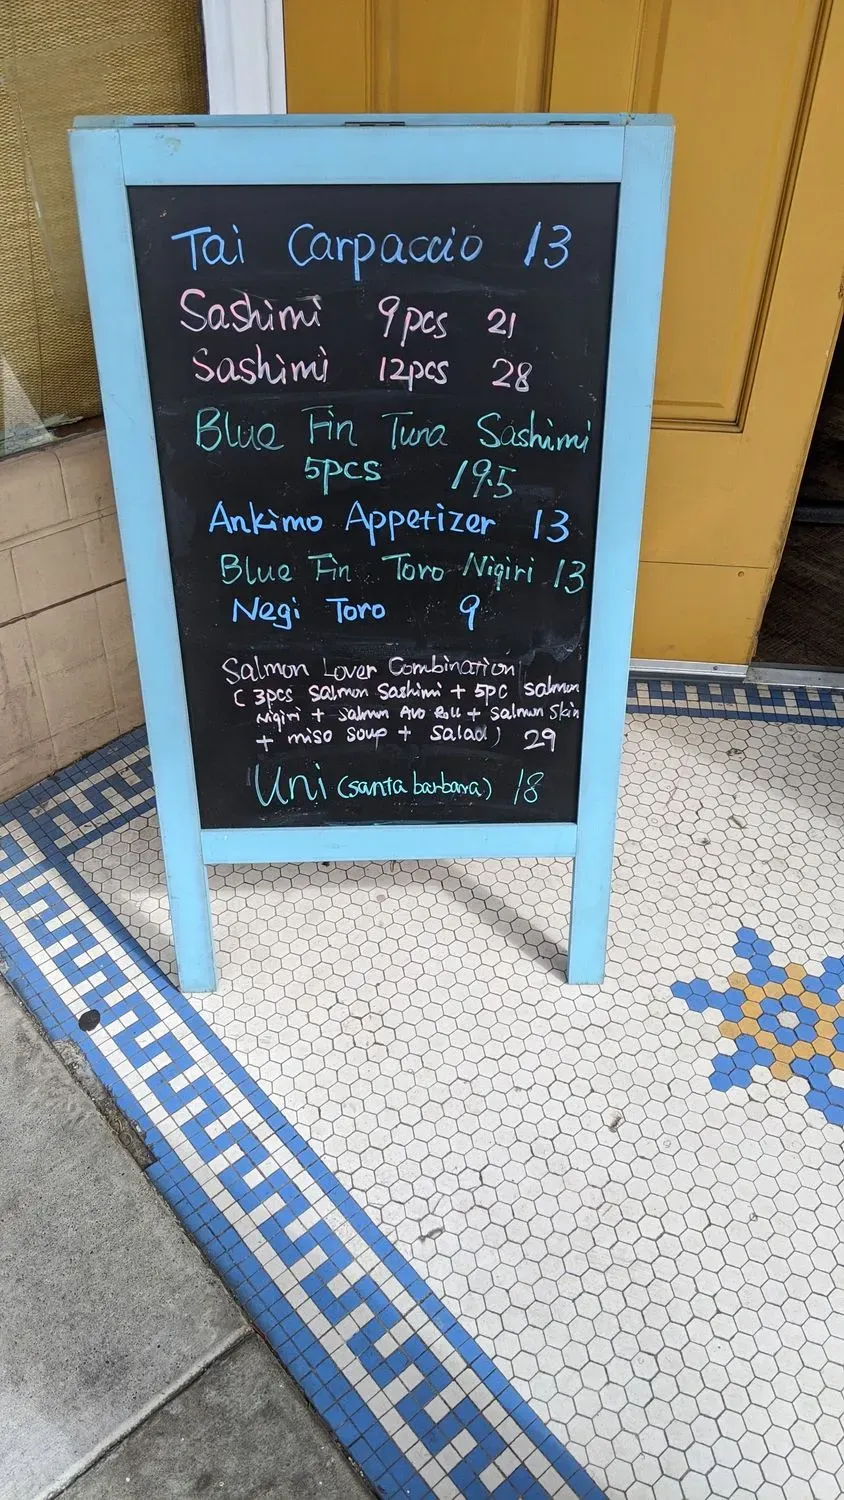 Tai Carpaccio 13
Sashimi 9pcs 21
Sashimi 12pcs 28
Blue Fin Tuna Sashimi
5pcs 19.5
Ankimo Appetizer 13
Blue Fin Toro Nigiri 13
Negi Toro 9
Salmon Lover Combination
( 3pcs Salmon Sashimi + 5pc Salmon
Nigiri + Salmon Avo Roll + Salmon Skin
+ miso soup + Salad) 29
Uni (santa barbara) 18